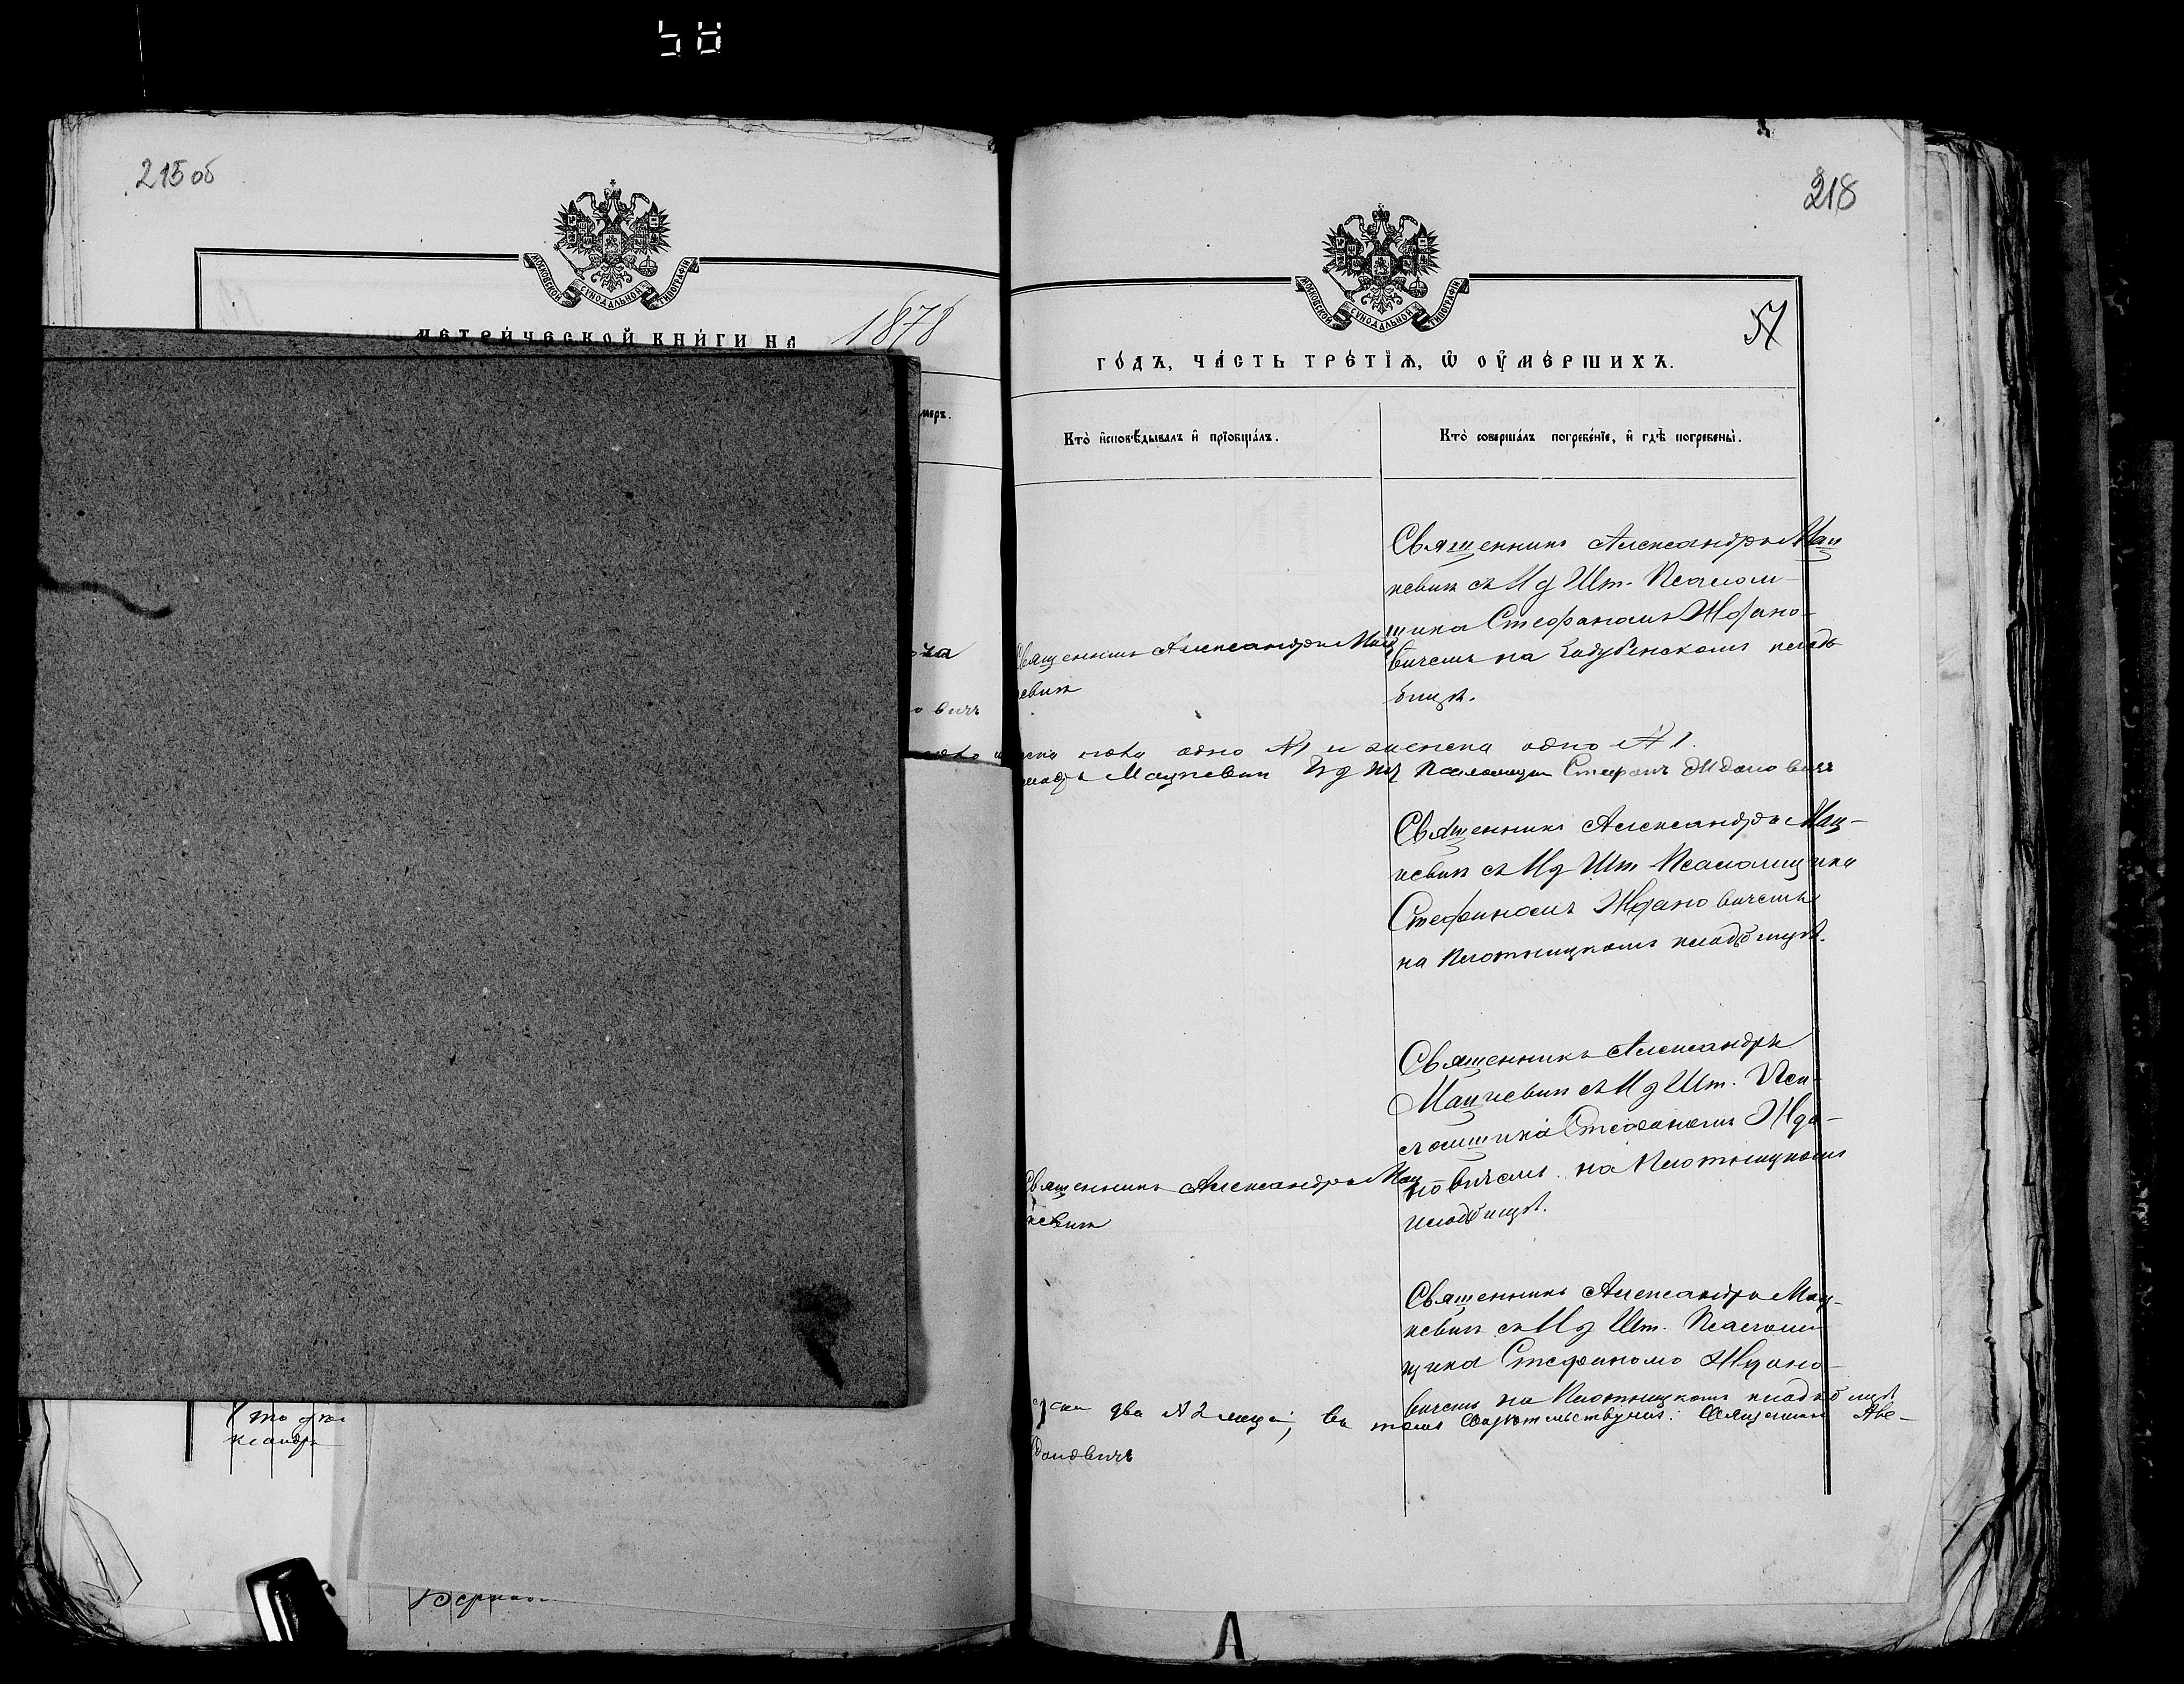 58
215 об
МОСКОВСКОЙ СѴНОДАЛЬНОЙ ТИПОГРАФІИ
МЕТРИ́ЧЕСКОЙ КНИ́ГИ НА 1878
меръ.
о вичъ
ксандръ
218
МОСКОВСКОЙ СѴНОДАЛЬНОЙ ТИПОГРАФІИ
57
ГО́ДЪ, ЧА́СТЬ ТРЕ́ТЇѦ, Ѽ ОУ҆МЕ́РШИХЪ.
Кто̀ и҆сповѣ́дывалъ и҆ прїобща́лъ.
Кто̀ соверша́лъ погребе́нїе, и҆ гдѣ̀ погребены̀.
Священникъ Александръ Мац
кевич съ И д Шт. Псалом-
щика Стефаномъ Ждано-
вичемъ на кладъ
бищѣ.
Священникъ Александръ Мац
кевич
одно № 1 и женска одно № 1.
Мацкевич И д Шт Псаломщик Стефанъ Ждановичъ
Священникъ Александръ Мац-
кевич съ И д Шт Псаломщика
Стефаномъ Ждановичемъ
на Плотницкомъ кладбищѣ.
Священникъ Александръ
Мацкевич съ И д Шт. Пса-
ломщика Стефаномъ Жда-
новичемъ на Плотницкомъ
кладбищѣ.
Священникъ Александръ Мац
кевич
Священникъ Александръ Мац-
кевич съ И д Шт. Псалом
щика Стефаномъ Ждано-
вичемъ на Плотницкомъ кладбищѣ
два № 2 лица, въ томъ свидѣтельствуемъ: Священник Але-
дановичъ
А